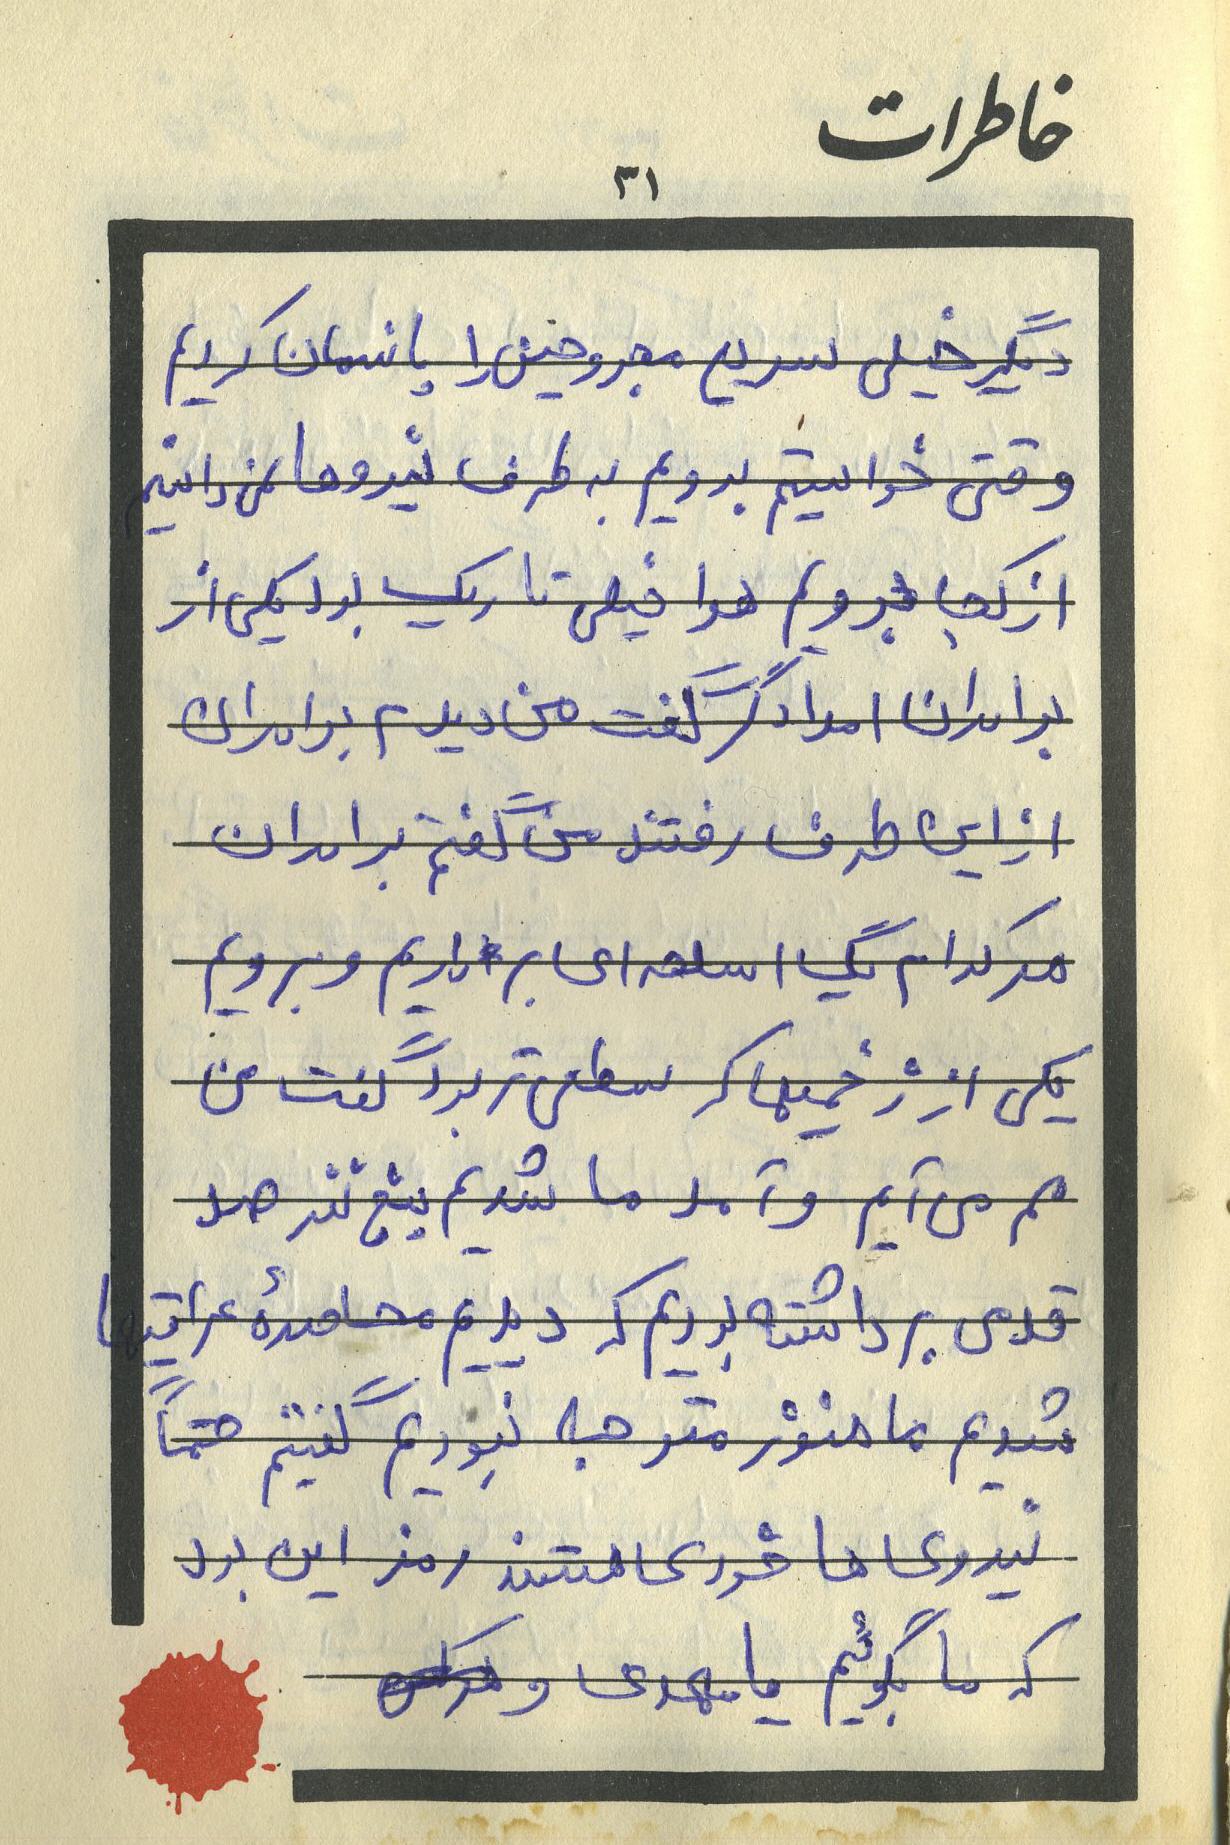 خاطرات
۳۱
دیگر خیلی سریع مجروحین را پانسمان کردیم
وقتی خواستیم برویم به طرف نیروها نمی‌دانیم
از کجا برویم هوا خیلی تاریک بود یکی از
برادران امدادگر گفت من دیدم برادران
از این طرف رفتند من گفتم برادران
هر کدام یک اسلحه‌ای برداریم و برویم
یکی از زخمیها که سطحی‌تر بود گفت من
هم می‌آیم و آمد ما شدیم پنج نفر صد
قدمی برداشته بودیم که دیدیم محاصرهٔ عراقیها
شدیم ما هنوز متوجه نبودیم گفتیم حتماً
نیروی ها خودی هستند رمز این بود
که ما بگوئیم یا مهدی و